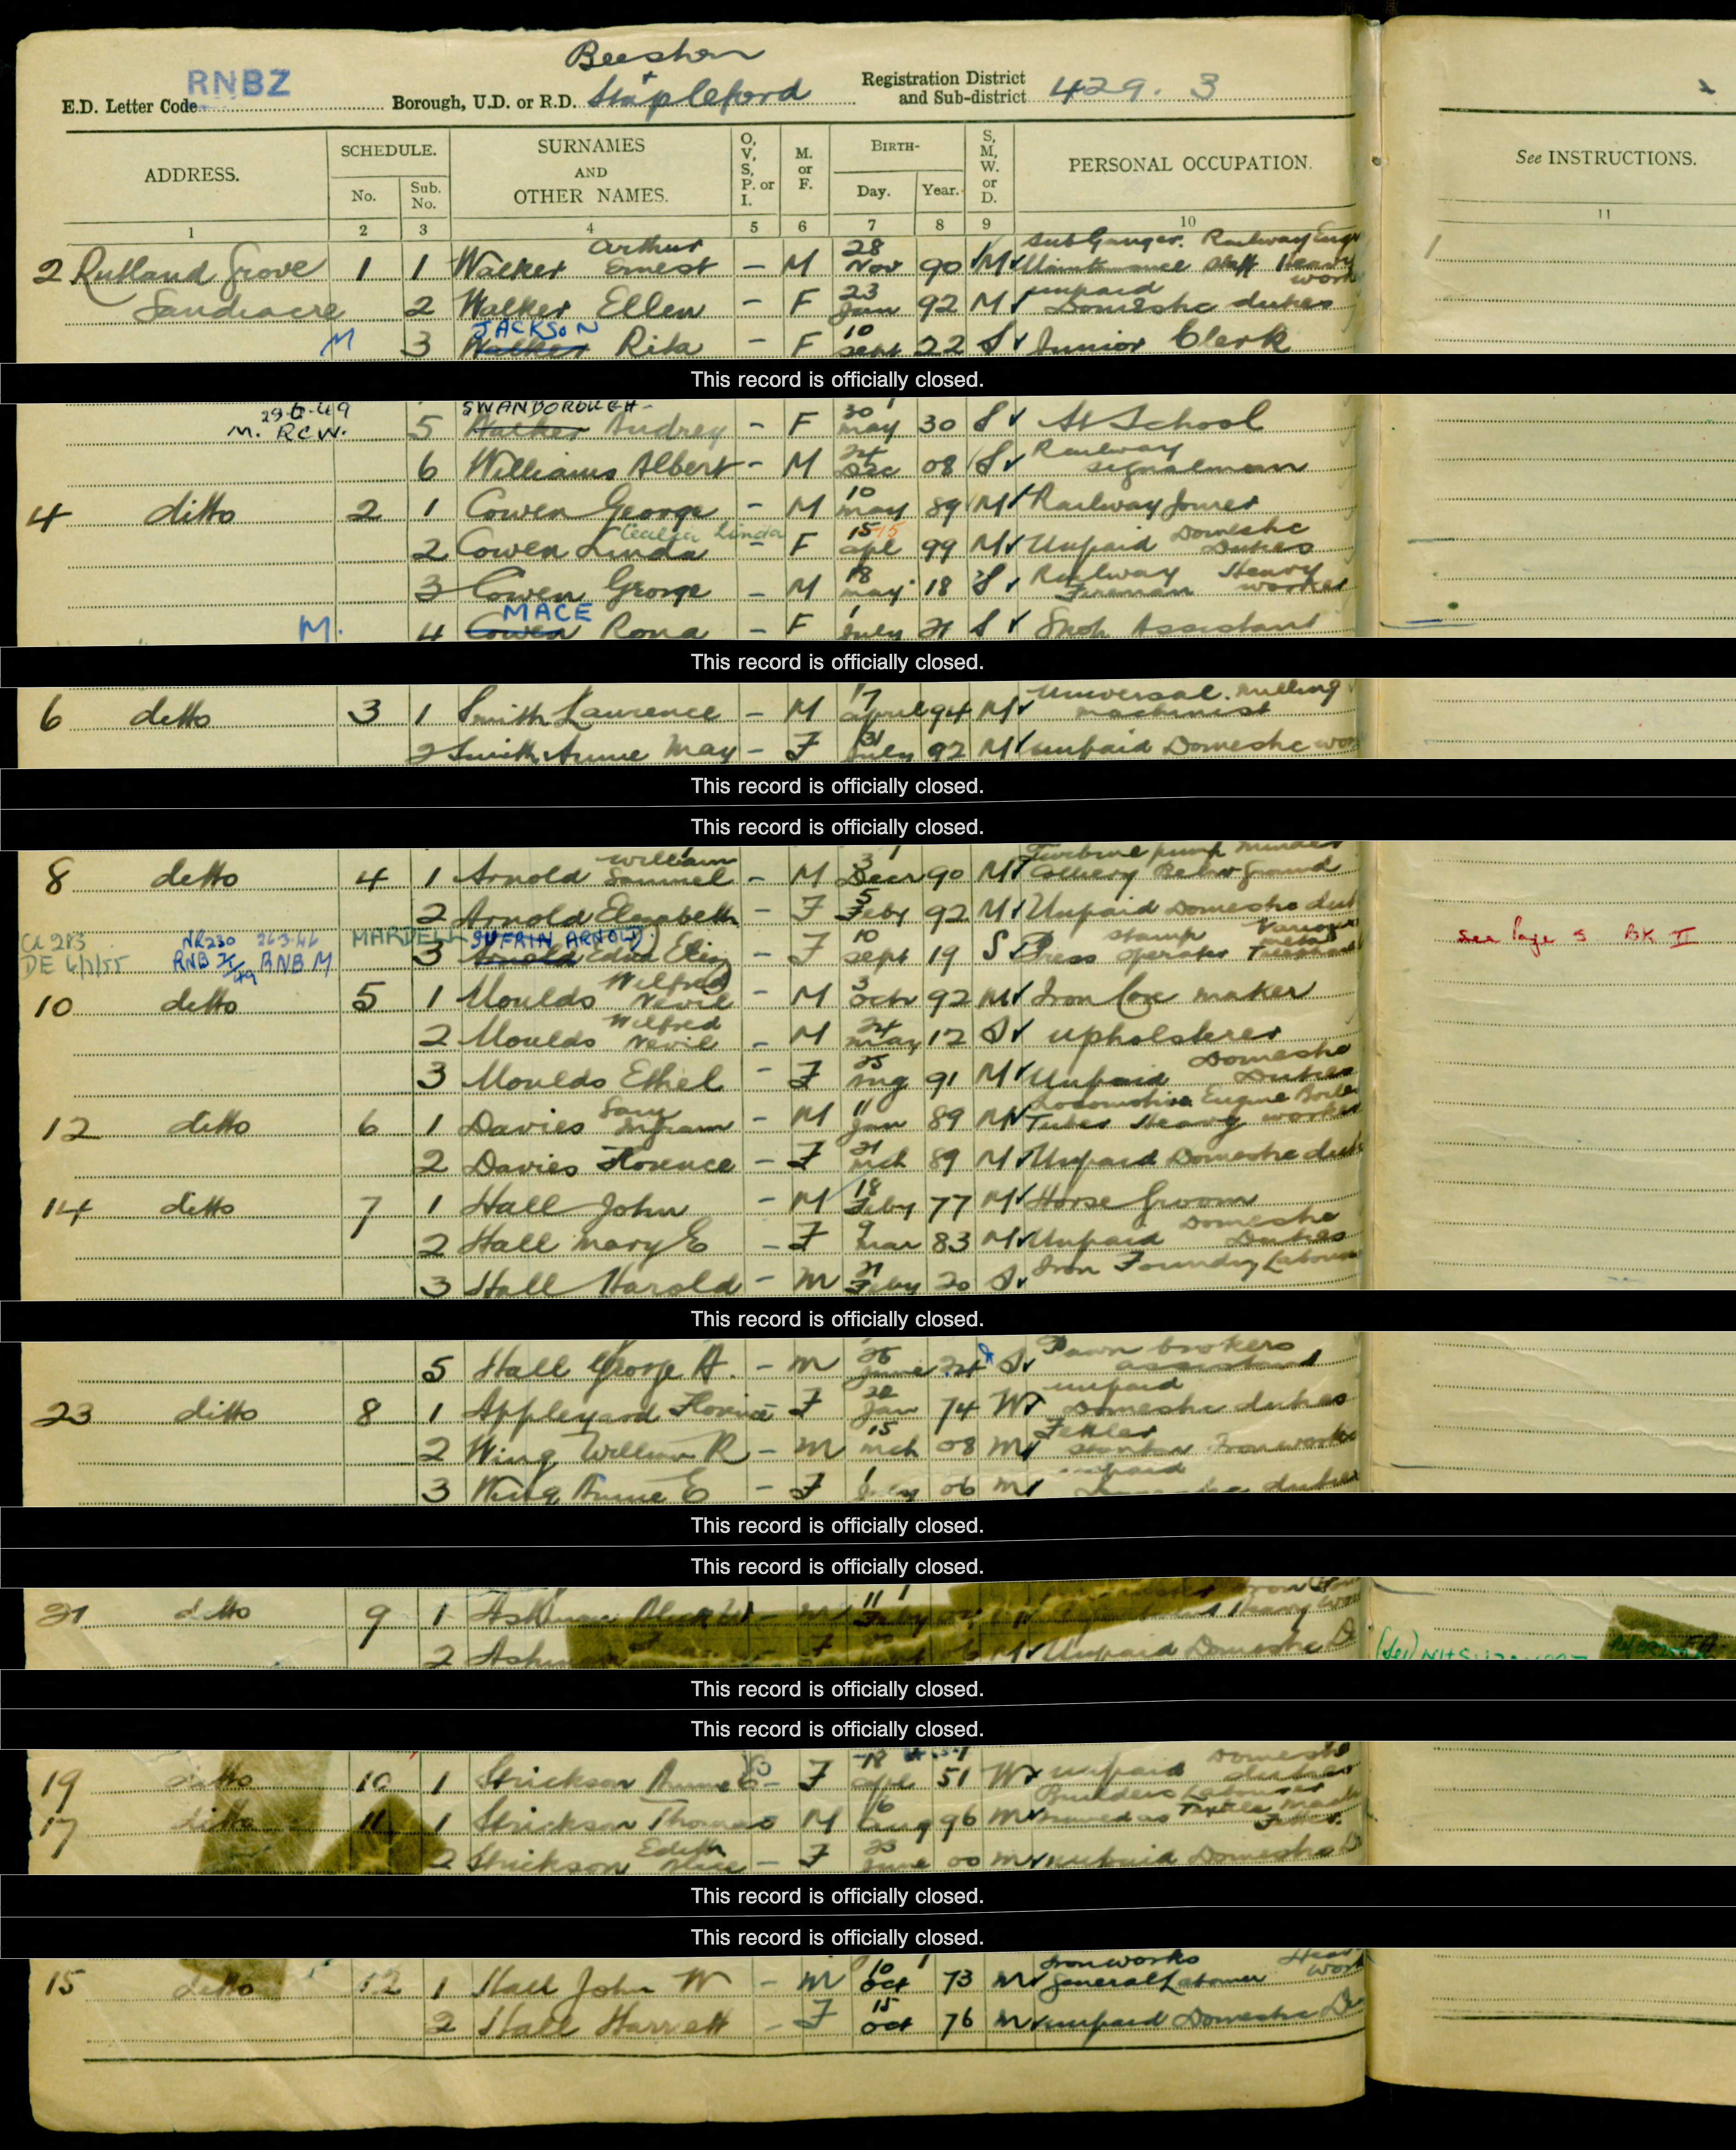 RNBZ
Beeston
+
E.D. Letter Code Borough, U.D. or R.D. Stapleford Registration District and Sub-district 429. 3
ADDRESS. SCHEDULE. No. Sub. No. SURNAMES AND OTHER NAMES. O, V, S, P. or I. M. or F. BIRTH- Day. Year. S, M, W. or D. PERSONAL OCCUPATION. See INSTRUCTIONS.
1 2 3 4 5 6 7 8 9 10 11
2 Rutland Grove 1 1 Walker Arthur Ernest - M 28 Nov 90 M Sub Ganger. Railway Engr Maintenance Staff Heavy work
Sandiacre 2 Walker Ellen - F 23 Jan 92 M unpaid Domestic duties
M 3 Walker JACKSON Rita - F 10 Sept 22 S Junior Clerk
This record is officially closed.
29-6-49 M. RCW. 5 Walker SWANBOROUGH Audrey - F 30 May 30 S At School
6 Williams Albert - M 24 Dec 08 S Railway Signalman
4 ditto 2 1 Cowen George - M 10 May 89 M Railway Joiner
2 Cowen Linda Cecilia Linda - F 15 Apl 99 M Unpaid Domestic Duties
3 Cowen George - M 18 May 18 S Railway Fireman Heavy worker
M. 4 Cowen MACE Rona - F 1 July 21 S Shop Assistant
This record is officially closed.
6 ditto 3 1 Smith Laurence - M 17 April 94 M Universal Milling machinist
2 Smith Annie May - F 31 July 92 M unpaid Domestic
This record is officially closed.
This record is officially closed.
8 ditto 4 1 Arnold William Samuel - M 3 Decr 90 M Turbine pump minder Colliery Below Ground
2 Arnold Elizabeth - F 5 Feby 92 M Unpaid Domestic
MARDELL SUFRIN ARNOLD
3 Arnold Edna Eliz - F 10 Sept 19 S Press stamp operator Various metal
see Page 5 BK II
10 ditto 5 1 Moulds Wilfred Nevil - M 3 Octr 92 M Iron Core maker
2 Moulds Wilfred Nevil - M 24 May 12 S upholsterer
3 Moulds Ethel - F 25 Aug 91 M Unpaid Domestic Duties
12 ditto 6 1 Davies Sam Ingram - M 11 Jan 89 M Locomotive Engine Boiler Tuber Heavy worker
2 Davies Florence - F 21 Mch 89 M Unpaid Domestic
14 ditto 7 1 Hall John - M 18 Feby 77 M Horse Groom
2 Hall Mary E - F 9 Mar 83 M Unpaid Domestic Duties
3 Hall Harold - M 21 Feby 20 S Iron Foundry Labourer
This record is officially closed.
5 Hall George A. - M 26 June 24 S Pawn brokers assistant
23 ditto 8 1 Appleyard Florence F 22 Jan 74 W unpaid Domestic duties
2 Wing William R - M 15 Mch 08 M Fettler Stanton Ironworks
3 Wing Annie E - F 1 July 06 M unpaid duties
This record is officially closed.
This record is officially closed.
31 ditto 9 1 11 Heavy
2 F M Unpaid Domestic
This record is officially closed.
This record is officially closed.
19 ditto 10 1 Strickson Annie E - F 18 Apl 51 W unpaid Domestic duties
17 ditto 11 1 Strickson Thomas M 16 Aug 96 M Builders Labourer
2 Strickson Edith Alice - F 23 June 00 M unpaid Domestic
This record is officially closed.
This record is officially closed.
15 ditto 12 1 Hall John W - M 10 Oct 73 M Ironworks General Labourer Heavy work
2 Hall Harriett - F 15 Oct 76 M unpaid Domestic